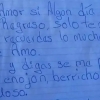 Amor si Algún día
Regreso, solo te
recuerdas lo mucho
te Amo.
y digas se me
enojón, berrincho
doso.